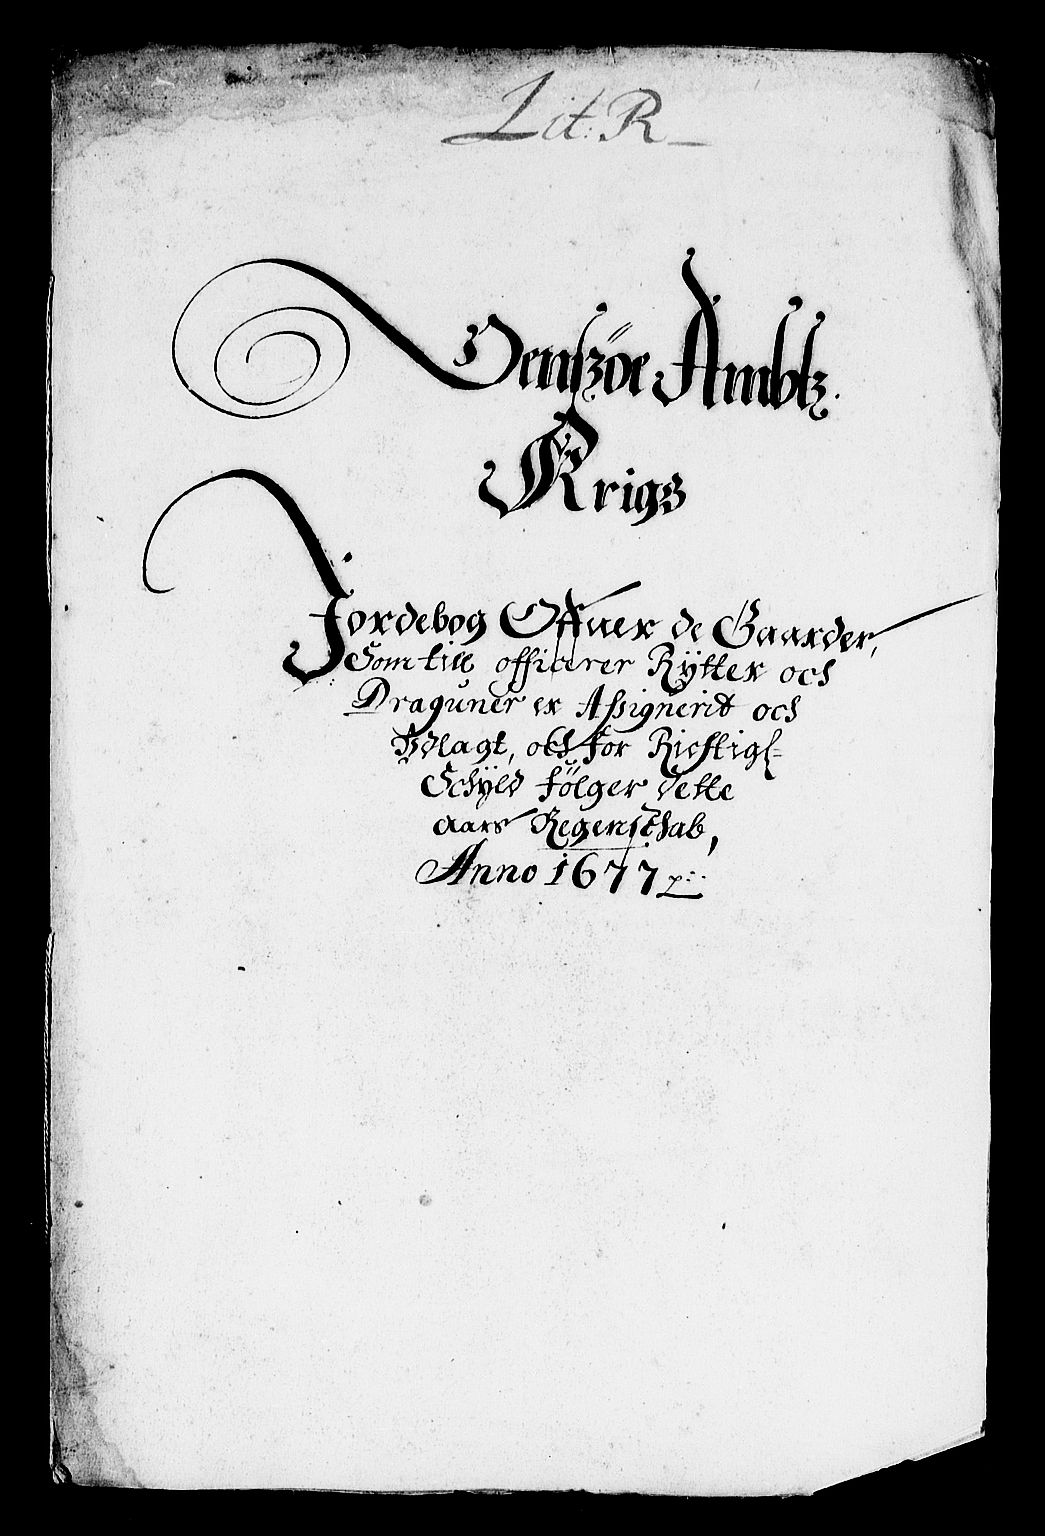 Lit: R
Jenszöe Ambtz
Krigs
Jordebog Offuer de Gaarder,
Som till officerer Rÿtter och
Draguner er Assignerit och
Vdlagt, och for Rictigs
Schÿld følger dette
aars Regenschab,
Anno 1677